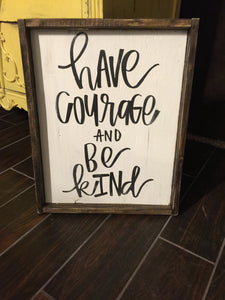 have
courage
AND
Be
kIND